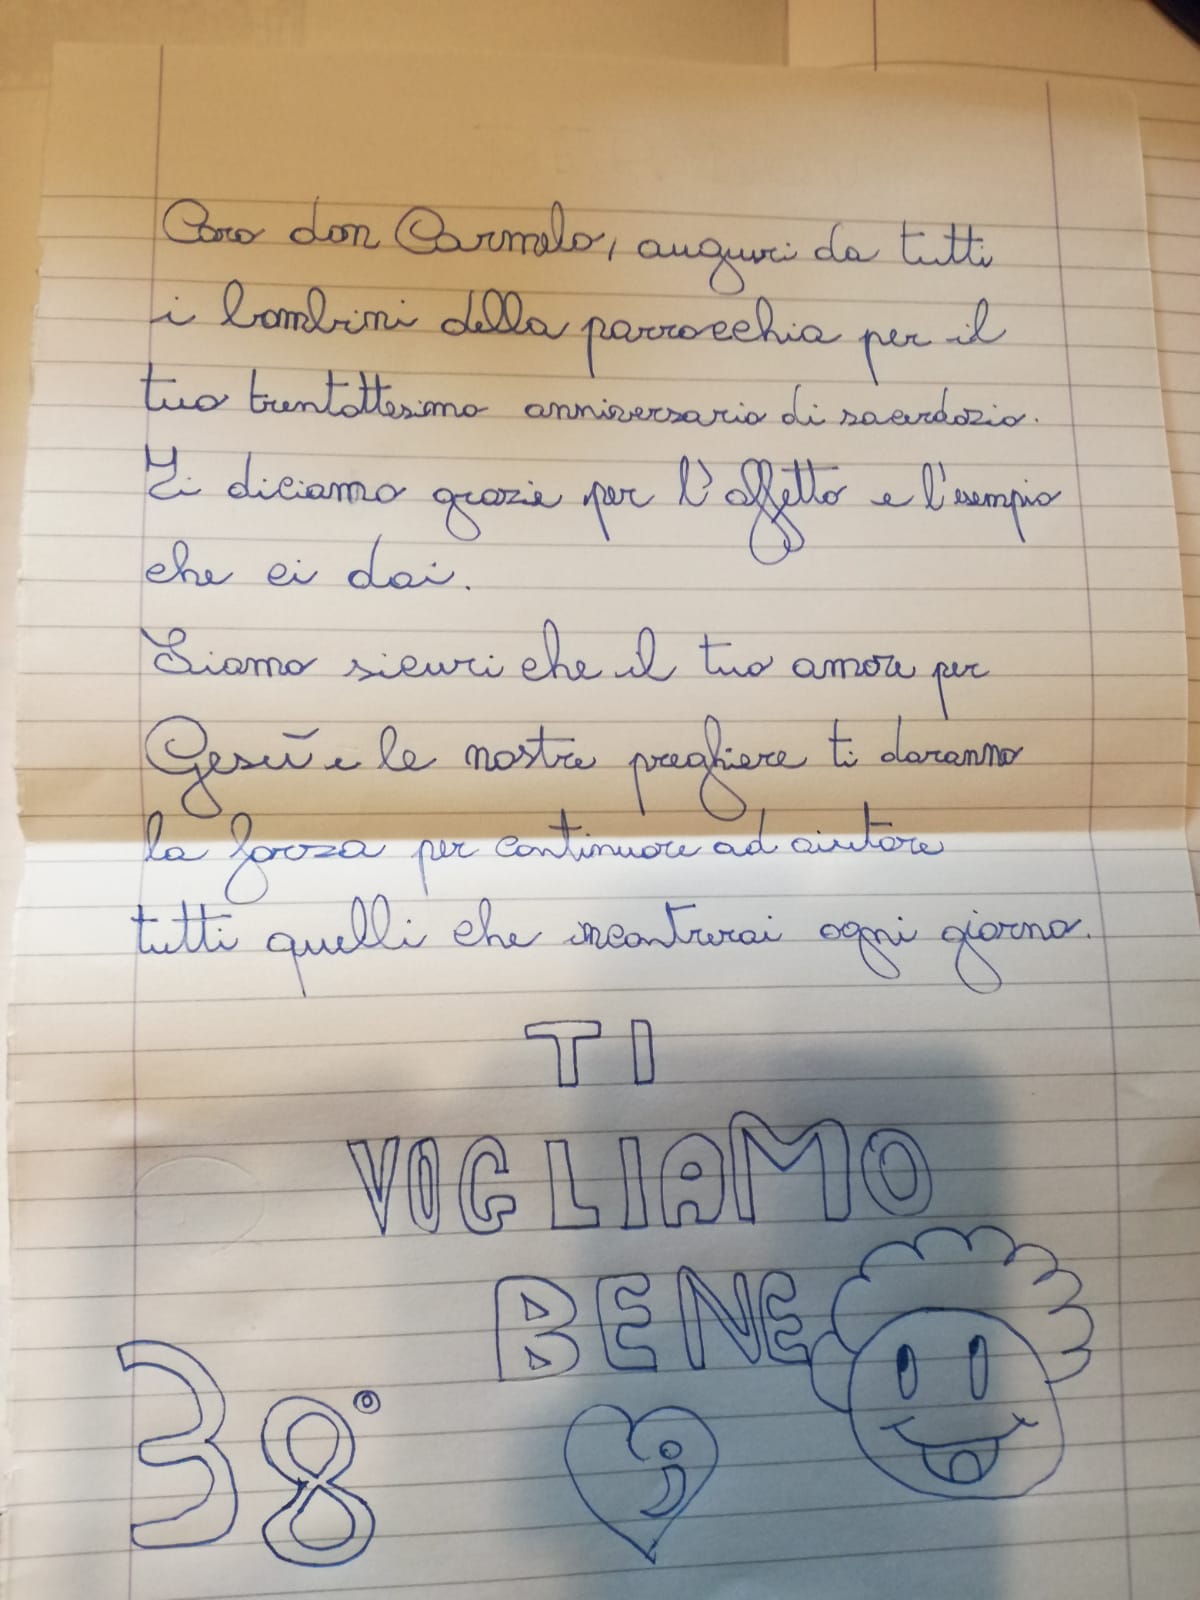 Caro don Carmelo, auguri da tutti
i bambini della parrocchia per il
tuo trentottesimo anniversario di sacerdozio.
Ti diciamo grazie per l'affetto e l'esempio
che ci dai.
Siamo sicuri che il tuo amore per
Gesù e le nostre preghiere ti daranno
la forza per continuare ad aiutare
tutti quelli che incontrerai ogni giorno.
TI
VOGLIAMO
BENE
38°
;